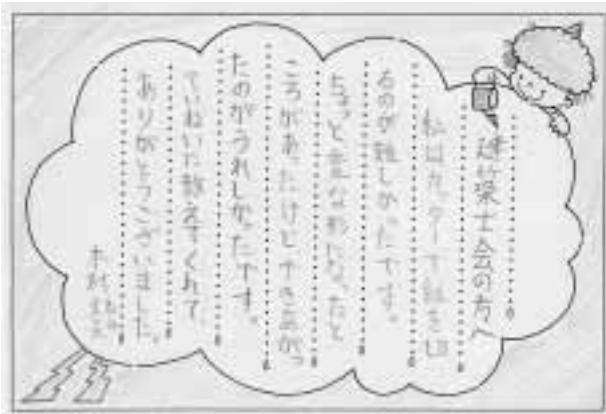 建築士会の方へ
私はカッターで紙を切
るのが難しかったです。
ちょっと変なかたちになったと
ころがあったけどできあがっ
たのがうれしかったです。
ていねいに教えてくれて、
ありがとうございました。
木村